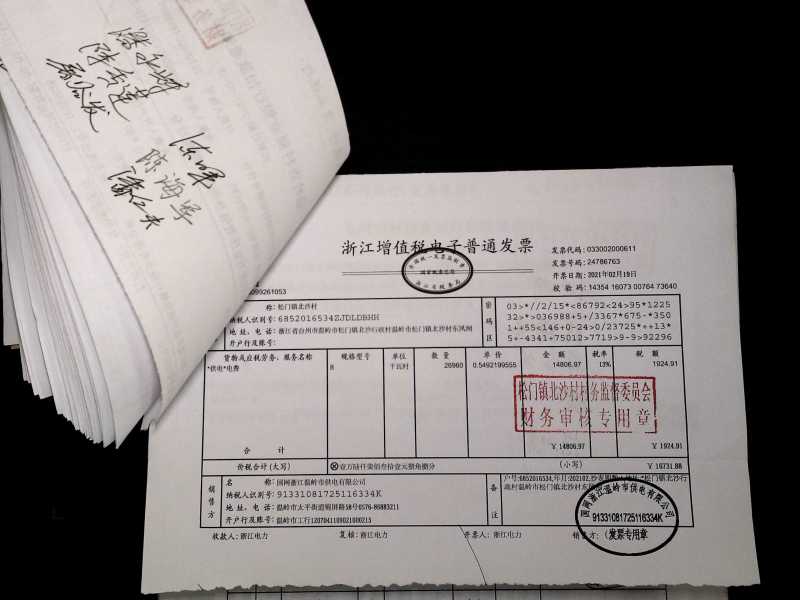 陈海军
浙江增值税电子普通发票
发票代码: 033002000611
发票号码: 24786763
开票日期: 2021年02月19日
校验码: 14354 16073 00764 73640
099261053
称: 松门镇北沙村
纳税人识别号: 6852016534ZJDLDBHH
地址、电话: 浙江省台州市温岭市松门镇北沙行政村温岭市松门镇北沙村东风闸
开户行及账号:
密码区
03>*//2/15*<86792<24>95*1225
32>*>036988+5+/3367*675-*350
1++55<146+0-24>0/23725*++13*
5+-4341+75012>7719>9-9>92296
货物或应税劳务、服务名称 规格型号 单位 数量 单价 金额 税率 税额
*供电*电费 8 千瓦时 26960 0.5492199555 14806.97 13% 1924.91
松门镇北沙村村务监督委员会
财务审核专用章
合计 ¥ 14806.97 ¥ 1924.91
价税合计(大写) ⊗壹万陆仟柒佰叁拾壹元捌角捌分 (小写) ¥ 16731.88
销售方
名称: 国网浙江温岭市供电有限公司
纳税人识别号: 91331081725116334K
地址、电话: 温岭市太平街道锦屏路58号0576-86883211
开户行及账号: 温岭市工行1207041109021000213
备注
户号:6852016534,年月:202102,
政村温岭市松门镇北沙村东风
国网浙江温岭市供电有限公司
91331081725116334K
(发票专用章)
收款人: 浙江电力 复核: 浙江电力 开票人: 浙江电力 销售方: